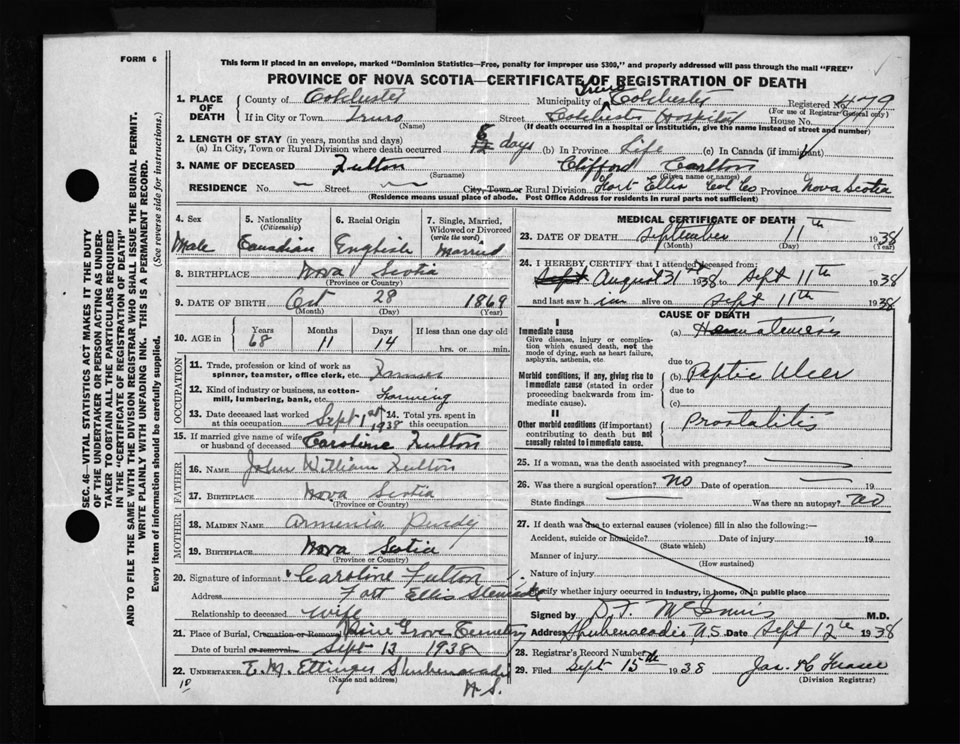 FORM 6
This form if placed in an envelope, marked "Dominion Statistics—Free, penalty for improper use $300," and properly addressed will pass through the mail "FREE"
PROVINCE OF NOVA SCOTIA—CERTIFICATE OF REGISTRATION OF DEATH
1. PLACE OF DEATH County of Colchester Municipality of Truro Colchester Registered No. 479
(For use of Registrar General only)
If in City or Town Truro Street Colchester Hospital House No.
(Name) (If death occurred in a hospital or institution, give the name instead of street and number)
2. LENGTH OF STAY (in years, months and days)
(a) In City, Town or Rural Division where death occurred 8 days (b) In Province Life (c) In Canada (if immigrant)
3. NAME OF DECEASED Fulton Clifford Carlton
(Surname) (Given name or names)
RESIDENCE No. — Street City, Town or Rural Division Fort Ellis Col Co Province Nova Scotia
(Residence means usual place of abode. Post Office Address for residents in rural parts not sufficient)
4. Sex 5. Nationality 6. Racial Origin 7. Single, Married, Widowed or Divorced
(Citizenship) (write the word)
Male Canadian English Married
8. BIRTHPLACE Nova Scotia
(Province or Country)
9. DATE OF BIRTH Oct 28 1869
(Month) (Day) (Year)
10. AGE in Years Months Days If less than one day old
68 11 14 hrs. or min.
OCCUPATION
11. Trade, profession or kind of work as spinner, teamster, office clerk, etc. Farmer
12. Kind of industry or business, as cotton-mill, lumbering, bank, etc. Farming
13. Date deceased last worked at this occupation Sept 1st 1938 14. Total yrs. spent in this occupation
15. If married give name of wife or husband of deceased Caroline Fulton
FATHER
16. NAME John William Fulton
17. BIRTHPLACE Nova Scotia
(Province or Country)
MOTHER
18. MAIDEN NAME Armenia Purdy
19. BIRTHPLACE Nova Scotia
(Province or Country)
20. Signature of informant Caroline Fulton
Address Fort Ellis Stewiacke
Relationship to deceased Wife
21. Place of Burial, Cremation or Removal Pine Grove Cemetery
Date of burial or removal Sept 13 1938
22. UNDERTAKER E. M. Ettinger Shubenacadie
(Name and address) N.S.
10
MEDICAL CERTIFICATE OF DEATH
23. DATE OF DEATH September 11th 1938
(Month) (Day) (Year)
24. I HEREBY CERTIFY that I attended deceased from:
Sept August 31st 1938 to Sept 11th 1938
and last saw him alive on Sept 11th 1938
CAUSE OF DEATH
I
Immediate cause (a) Hematemesis
Give disease, injury or complication which caused death, not the mode of dying, such as heart failure, asphyxia, asthenia, etc.
due to
Morbid conditions, if any, giving rise to immediate cause (stated in order proceeding backwards from immediate cause). (b) Peptic Ulcer
due to
(c)
II
Other morbid conditions (if important) contributing to death but not causally related to immediate cause. Prostatitis
25. If a woman, was the death associated with pregnancy?
26. Was there a surgical operation? No Date of operation 19
State findings Was there an autopsy? no
27. If death was due to external causes (violence) fill in also the following:—
Accident, suicide or homicide? Date of injury 19
(State which)
Manner of injury
(How sustained)
Nature of injury
Specify whether injury occurred in industry, in home, or in public place
Signed by D. F. McInnis M.D.
Address Shubenacadie N.S. Date Sept 12th 1938
28. Registrar's Record Number
29. Filed Sept 15th 1938
(Division Registrar)
SEC. 46—VITAL STATISTICS ACT MAKES IT THE DUTY
OF THE UNDERTAKER OR PERSON ACTING AS UNDER-
TAKER TO OBTAIN ALL THE PARTICULARS REQUIRED
IN THE "CERTIFICATE OF REGISTRATION OF DEATH"
AND TO FILE THE SAME WITH THE DIVISION REGISTRAR WHO SHALL ISSUE THE BURIAL PERMIT.
WRITE PLAINLY WITH UNFADING INK. THIS IS A PERMANENT RECORD.
Every item of information should be carefully supplied. (See reverse side for instructions.)